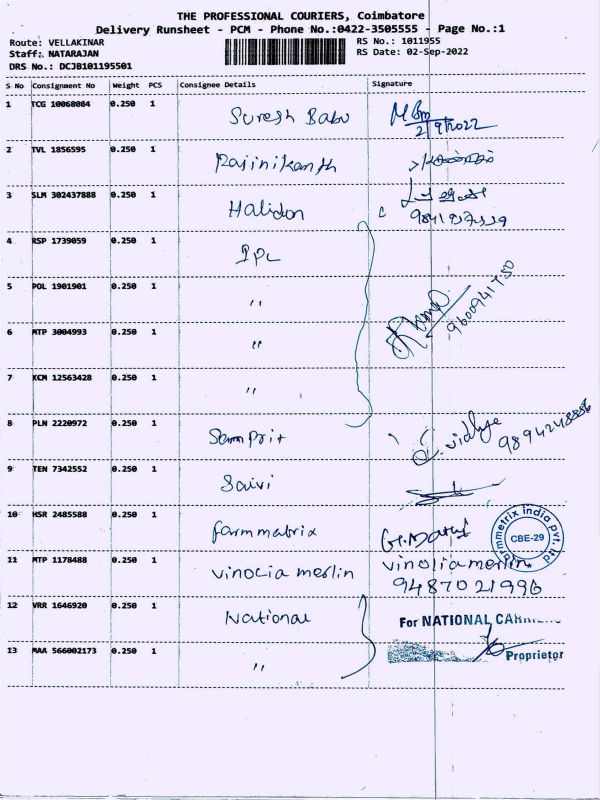 THE PROFESSIONAL COURIERS, Coimbatore
Delivery Runsheet - PCM - Phone No.:0422-3505555 - Page No.:1
Route: VELLAKINAR
Staff: NATARAJAN
DRS No.: DCJB101195501
RS No.: 1011955
RS Date: 02-Sep-2022
S No Consignment No Weight PCS Consignee Details Signature
1 TCG 10068084 0.250 1 Suresh Babu
2/9/2022
2 TVL 1856595 0.250 1 Rajinikanth
3 SLM 302437888 0.250 1 Halidon
4 RSP 1739059 0.250 1 IPL
5 POL 1901901 0.250 1 "
9600941750
6 MTP 3004993 0.250 1 "
7 KCM 12563428 0.250 1 "
8 PLN 2220972 0.250 1 Samprit
9 TEN 7342552 0.250 1 Saivi
10 HSR 2485588 0.250 1 farmmatrix
rmmetrix india pvt. ltd
CBE-29
11 MTP 1178488 0.250 1 vinocia merlin vinolia merlin
9487021996
12 VRR 1646920 0.250 1 National For NATIONAL
13 MAA 566002173 0.250 1 " Proprietor